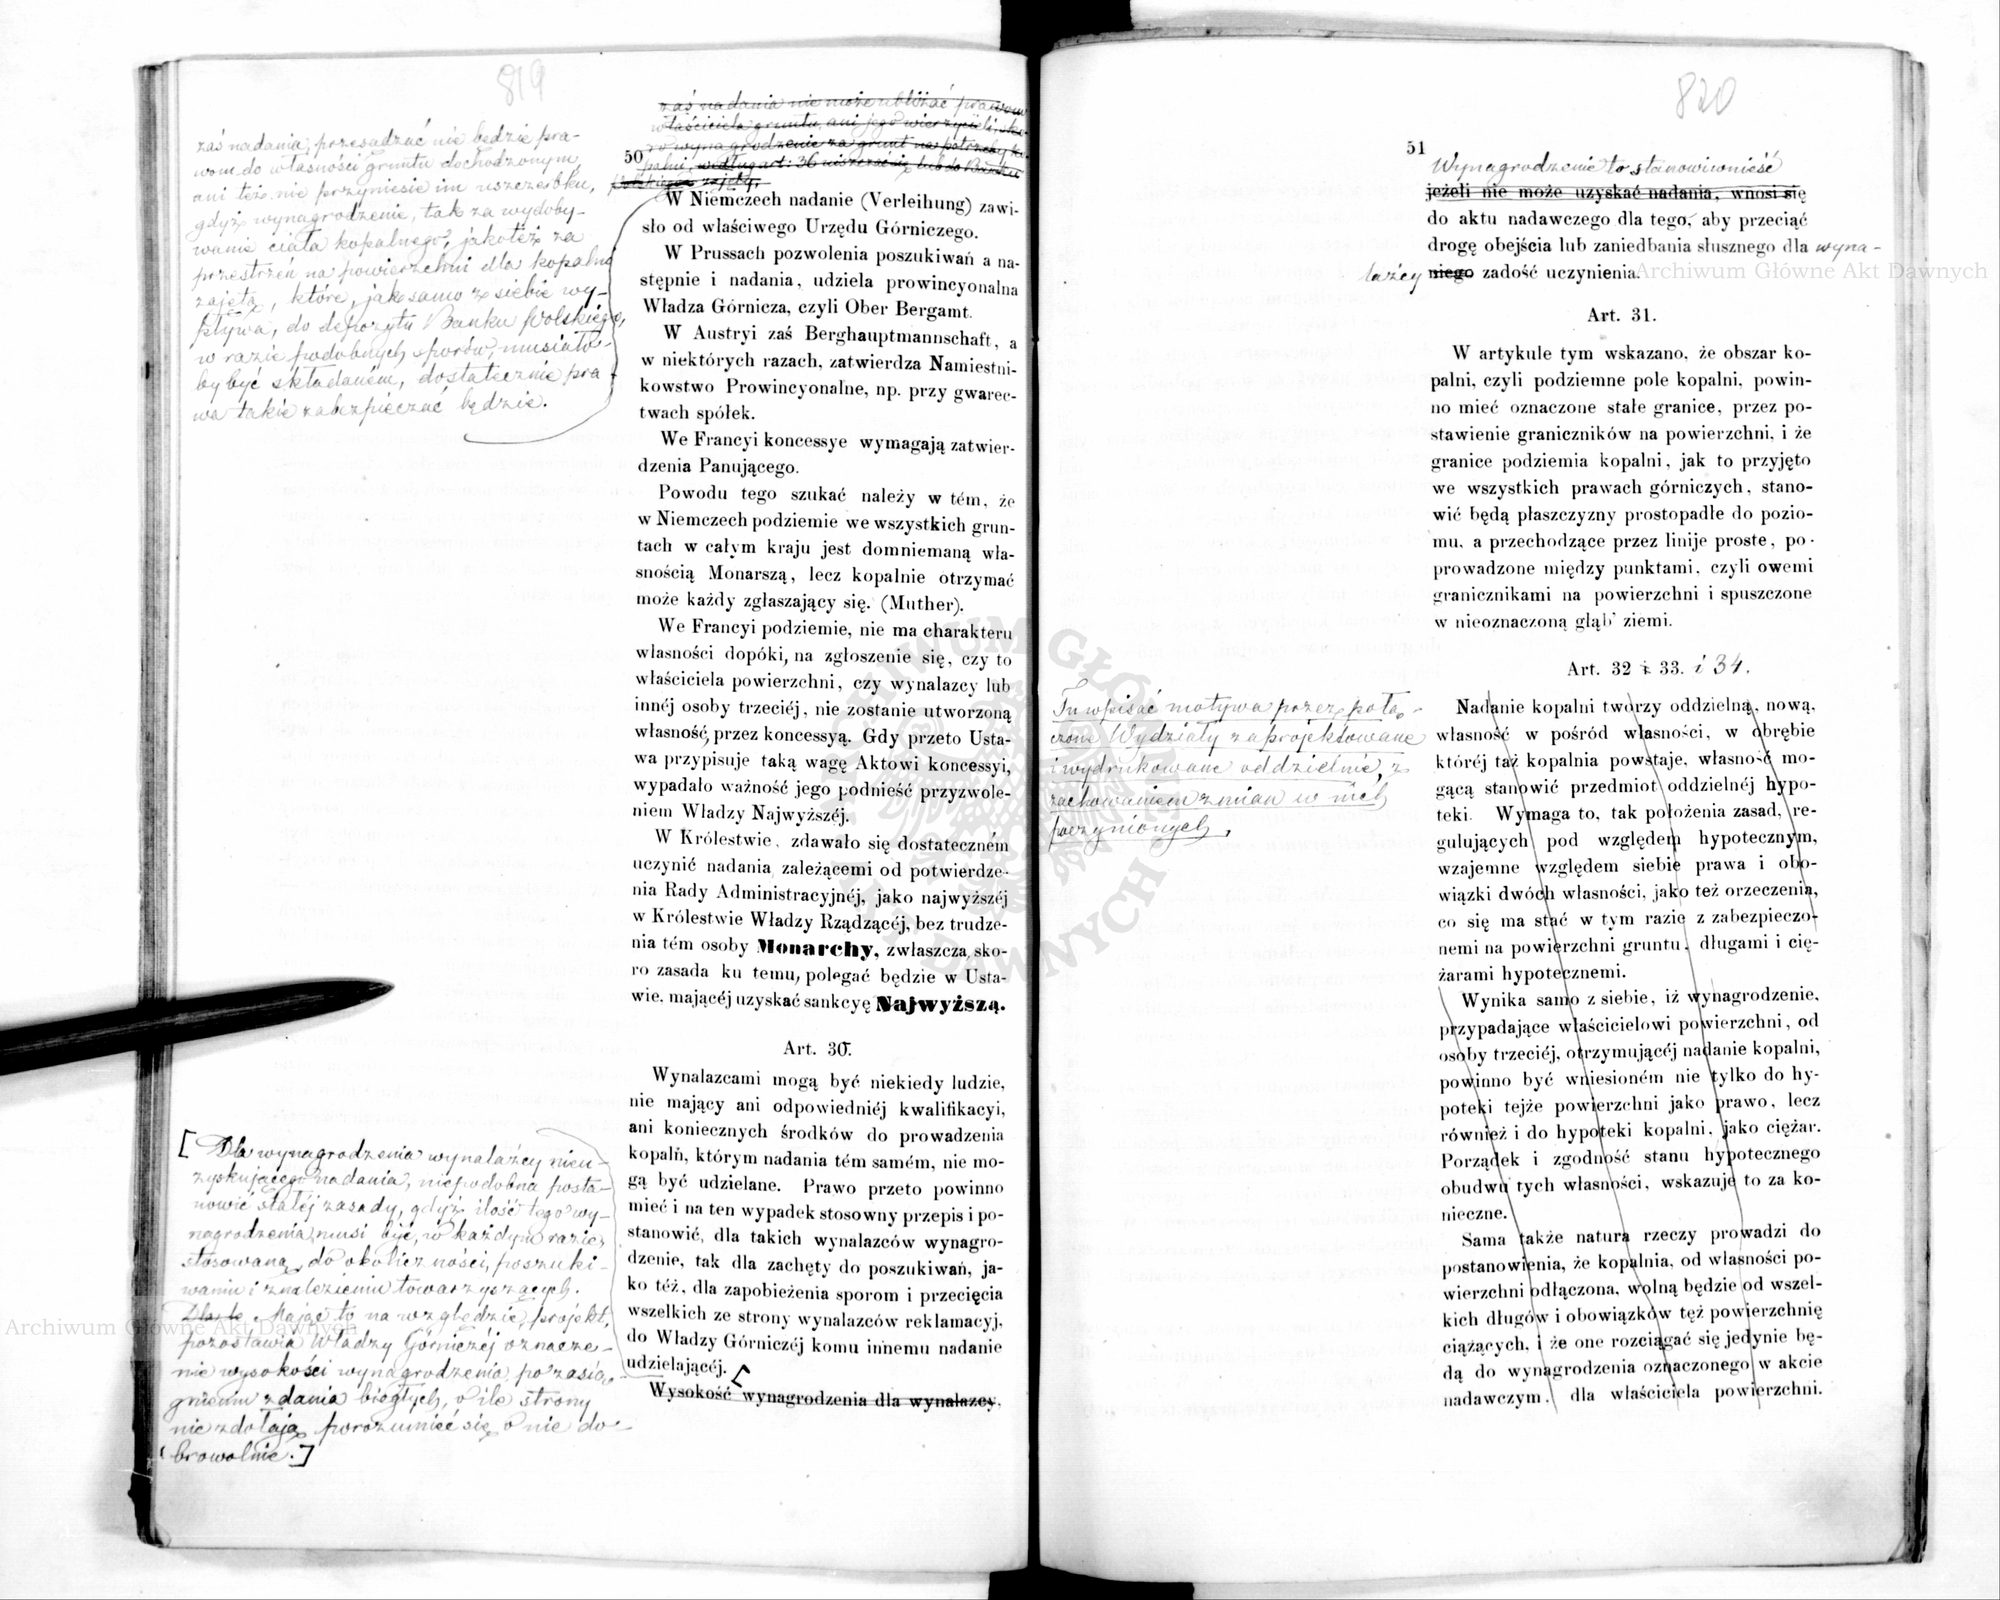 819
zaś nadania, przesądzać nie będzie pra-
wom do własności gruntu dochodzonym
ani też nie przyniesie im uszczerbku,
gdyż wynagrodzenie, tak za wydoby-
wanie ciała kopalnego, jakoteż za
przestrzeń na powierzchni dla kopalni
zajętą, które, jak samo z siebie wy-
pływa, do depozytu Banku Polskiego,
w razie podobnych sporów, musiało-
by być składaném, dostatecznie pra-
wa takie zabezpieczać będzie.
zaś nadania nie może ubliżać prawom
właściciela gruntu, ani jego wierzycieli, sko-
ro wynagrodzenie za grunt na potrzeby ko-
palni, według art: 36 uiszczać się lub do Banku
Polskiego
50
W Niemczech nadanie (Verleihung) zawi-
sło od właściwego Urzędu Górniczego.
W Prussach pozwolenia poszukiwań a na-
stępnie i nadania, udziela prowincyonalna
Władza Górnicza, czyli Ober Bergamt.
W Austryi zaś Berghauptmannschaft, a
w niektórych razach, zatwierdza Namiestni-
kowstwo Prowincyonalne, np. przy gwarec-
twach spółek.
We Francyi koncessye wymagają zatwier-
dzenia Panującego.
Powodu tego szukać należy w tém, że
w Niemczech podziemie we wszystkich grun-
tach w całym kraju jest domniemaną wła-
snością Monarszą, lecz kopalnie otrzymać
może każdy zgłaszający się. (Muther).
We Francyi podziemie, nie ma charakteru
własności dopóki, na zgłoszenie się, czy to
właściciela powierzchni, czy wynalazcy lub
innéj osoby trzeciéj, nie zostanie utworzoną
własność, przez koncessyą. Gdy przeto Usta-
wa przypisuje taką wagę Aktowi koncessyi,
wypadało ważność jego podnieść przyzwole-
niem Władzy Najwyższéj.
W Królestwie, zdawało się dostateczném
uczynić nadania zależącemi od potwierdze-
nia Rady Administracyjnéj, jako najwyższéj
w Królestwie Władzy Rządzącéj, bez trudze-
nia tém osoby Monarchy, zwłaszcza, sko-
ro zasada ku temu, polegać będzie w Usta-
wie, mającéj uzyskać sankcyę Najwyższą.
Art. 30.
Wynalazcami mogą być niekiedy ludzie,
nie mający ani odpowiedniéj kwalifikacyi,
ani koniecznych środków do prowadzenia
kopalń, którym nadania tém samém, nie mo-
gą być udzielane. Prawo przeto powinno
mieć i na ten wypadek stosowny przepis i po-
stanowić, dla takich wynalazców wynagro-
dzenie, tak dla zachęty do poszukiwań, ja-
ko téż, dla zapobieżenia sporom i przecięcia
wszelkich ze strony wynalazców reklamacyj,
do Władzy Górniczéj komu innemu nadanie
udzielającéj. [
Wysokość wynagrodzenia dla wynalazcy,
[Dla wynagrodzenia wynalazcy nieu-
zyskującego nadania, niepodobna posta-
nowić stałéj zasady, gdyż ilość tego wy-
nagrodzenia, musi być, w każdym razie,
stosowaną do okoliczności, poszuki-
waniu i znalezieniu towarzyszących.
Mając to na względzie, projekt,
pozostawia Władzy Górniczéj oznacze-
nie wysokości wynagrodzenia po zasią-
gnieniu zdania biegłych, o ile strony
nie zdołają porozumieć się o nie do-
browolnie.]
820
51
Wynagrodzenie to stanowi
jeżeli nie może uzyskać nadania, wnosi się
do aktu nadawczego dla tego, aby przeciąć
drogę obejścia lub zaniedbania słusznego dla wyna-
lazcy niego zadość uczynienia.
Art. 31.
W artykule tym wskazano, że obszar ko-
palni, czyli podziemne pole kopalni, powin-
no mieć oznaczone stałe granice, przez po-
stawienie graniczników na powierzchni, i że
granice podziemia kopalni, jak to przyjęto
we wszystkich prawach górniczych, stano-
wić będą płaszczyzny prostopadłe do pozio-
mu, a przechodzące przez linije proste, po-
prowadzone między punktami, czyli owemi
granicznikami na powierzchni i spuszczone
w nieoznaczoną głąb' ziemi.
Art. 32 i 33. i 34.
Tu wpisać motywa przez połą-
czone Wydziały zaprojektowane
i wydrukowane oddzielnie, z
zachowaniem zmian w nich
poczynionych,
Nadanie kopalni tworzy oddzielną, nową,
własność w pośród własności, w obrębie
któréj taż kopalnia powstaje, własność mo-
gącą stanowić przedmiot oddzielnéj hypo-
teki. Wymaga to, tak położenia zasad, re-
gulujących pod względem hypotecznym,
wzajemne względem siebie prawa i obo-
wiązki dwóch własności, jako też orzeczenia,
co się ma stać w tym razie z zabezpieczo-
nemi na powierzchni gruntu, długami i cię-
żarami hypotecznemi.
Wynika samo z siebie, iż wynagrodzenie,
przypadające właścicielowi powierzchni, od
osoby trzeciéj, otrzymującéj nadanie kopalni,
powinno być wniesioném nie tylko do hy-
poteki tejże powierzchni jako prawo, lecz
również i do hypoteki kopalni, jako ciężar.
Porządek i zgodność stanu hypotecznego
obudwu tych własności, wskazuje to za ko-
nieczne.
Sama także natura rzeczy prowadzi do
postanowienia, że kopalnia, od własności po-
wierzchni odłączona, wolną będzie od wszel-
kich długów i obowiązków też powierzchnię
ciążących, i że one rozciągać się jedynie bę-
dą do wynagrodzenia oznaczonego w akcie
nadawczym, dla właściciela powierzchni.
Archiwum Główne Akt Dawnych
Archiwum Główne Akt Dawnych
ARCHIWUM GŁÓWNE AKT DAWNYCH